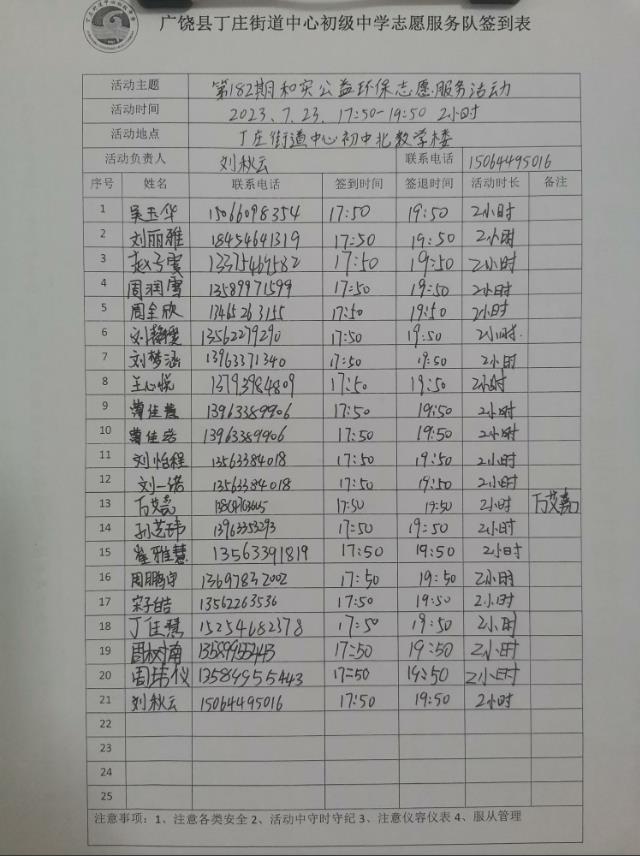 广饶县丁庄街道中心初级中学志愿服务队签到表
活动主题 第182期和实公益环保志愿服务活动
活动时间 2023.7.23. 17:50-19:50 2小时
活动地点 丁庄街道中心初中北教学楼
活动负责人 刘秋云 联系电话 15064495016
序号 姓名 联系电话 签到时间 签退时间 活动时长 备注
1 吴玉华 15066098354 17:50 19:50 2小时
2 刘丽雅 18454641319 17:50 19:50 2小时
3 赵子雯 13375469582 17:50 19:50 2小时
4 周润雪 13589971599 17:50 19:50 2小时
5 周全欣 13465263155 17:50 19:50 2小时
6 刘 13562279290 17:50 19:50 2小时.
7 刘梦涵 13963371340 17:50 19:50 2小时
8 王心悦 13793984809 17:50 19:50 2小时
9 曹佳慧 13963389906 17:50 19:50 2小时
10 曹佳诺 13963389906 17:50 19:50 2小时
11 刘怡程 13563384018 17:50 19:50 2小时
12 刘一诺 13563384018 17:50 19:50 2小时
13 万艾嘉 17:50 19:50 2小时 万艾嘉
14 孙艺玮 13963353293 17:50 19:50 2小时
15 崔雅慧 13563391819 17:50 19:50 2小时
16 周鹏宇 13697832002 17:50 19:50 2小时
17 宋子皓 13562263536 17:50 19:50 2小时
18 丁佳慧 15254682378 17:50 19:50 2小时
19 周树南 17:50 19:50 2小时
20 周 仪 13589955443 17:50 19:50 2小时
21 刘秋云 15064495016 17:50 19:50 2小时
22
23
24
25
注意事项：1、注意各类安全 2、活动中守时守纪 3、注意仪容仪表 4、服从管理